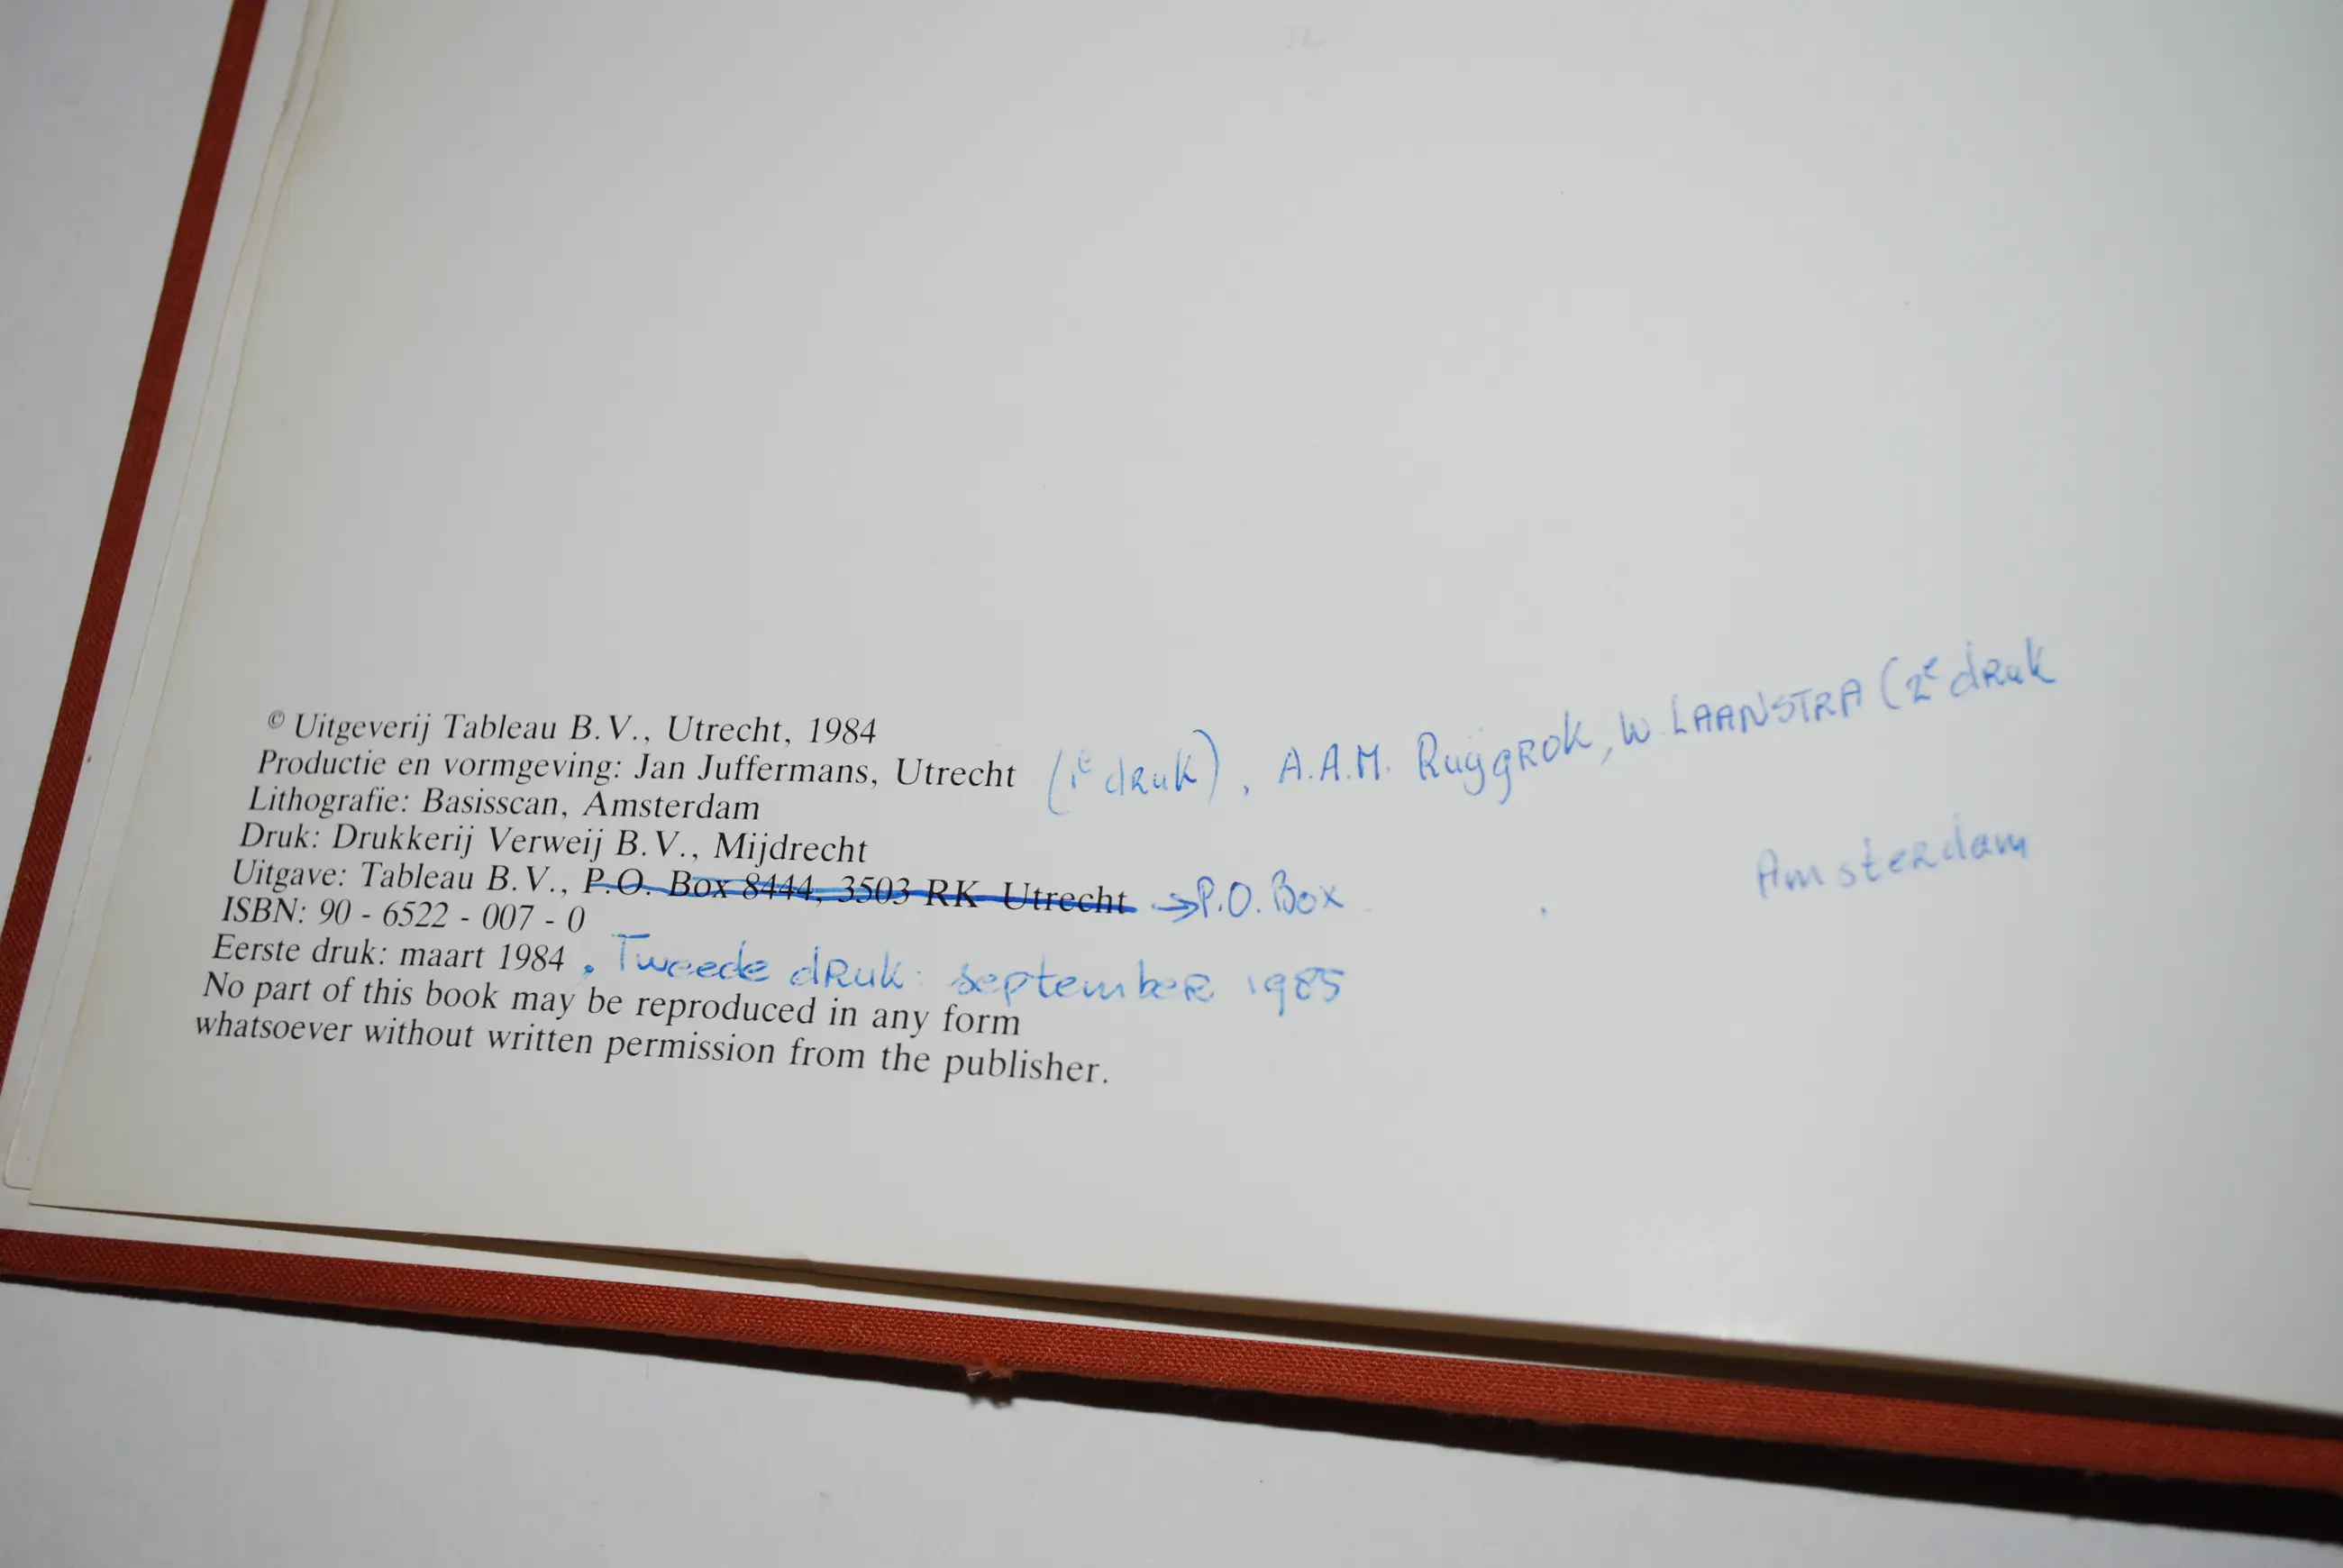 © Uitgeverij Tableau B.V., Utrecht, 1984
Productie en vormgeving: Jan Juffermans, Utrecht (1e druk), A.A.M. Ruÿgrok, W. LAANSTRA (2e druk
Lithografie: Basisscan, Amsterdam
Druk: Drukkerij Verweij B.V., Mijdrecht
Uitgave: Tableau B.V., P.O. Box 8444, 3503 RK Utrecht →P.O. Box Amsterdam
ISBN: 90 - 6522 - 007 - 0
Eerste druk: maart 1984, Tweede druk: september 1985
No part of this book may be reproduced in any form
whatsoever without written permission from the publisher.